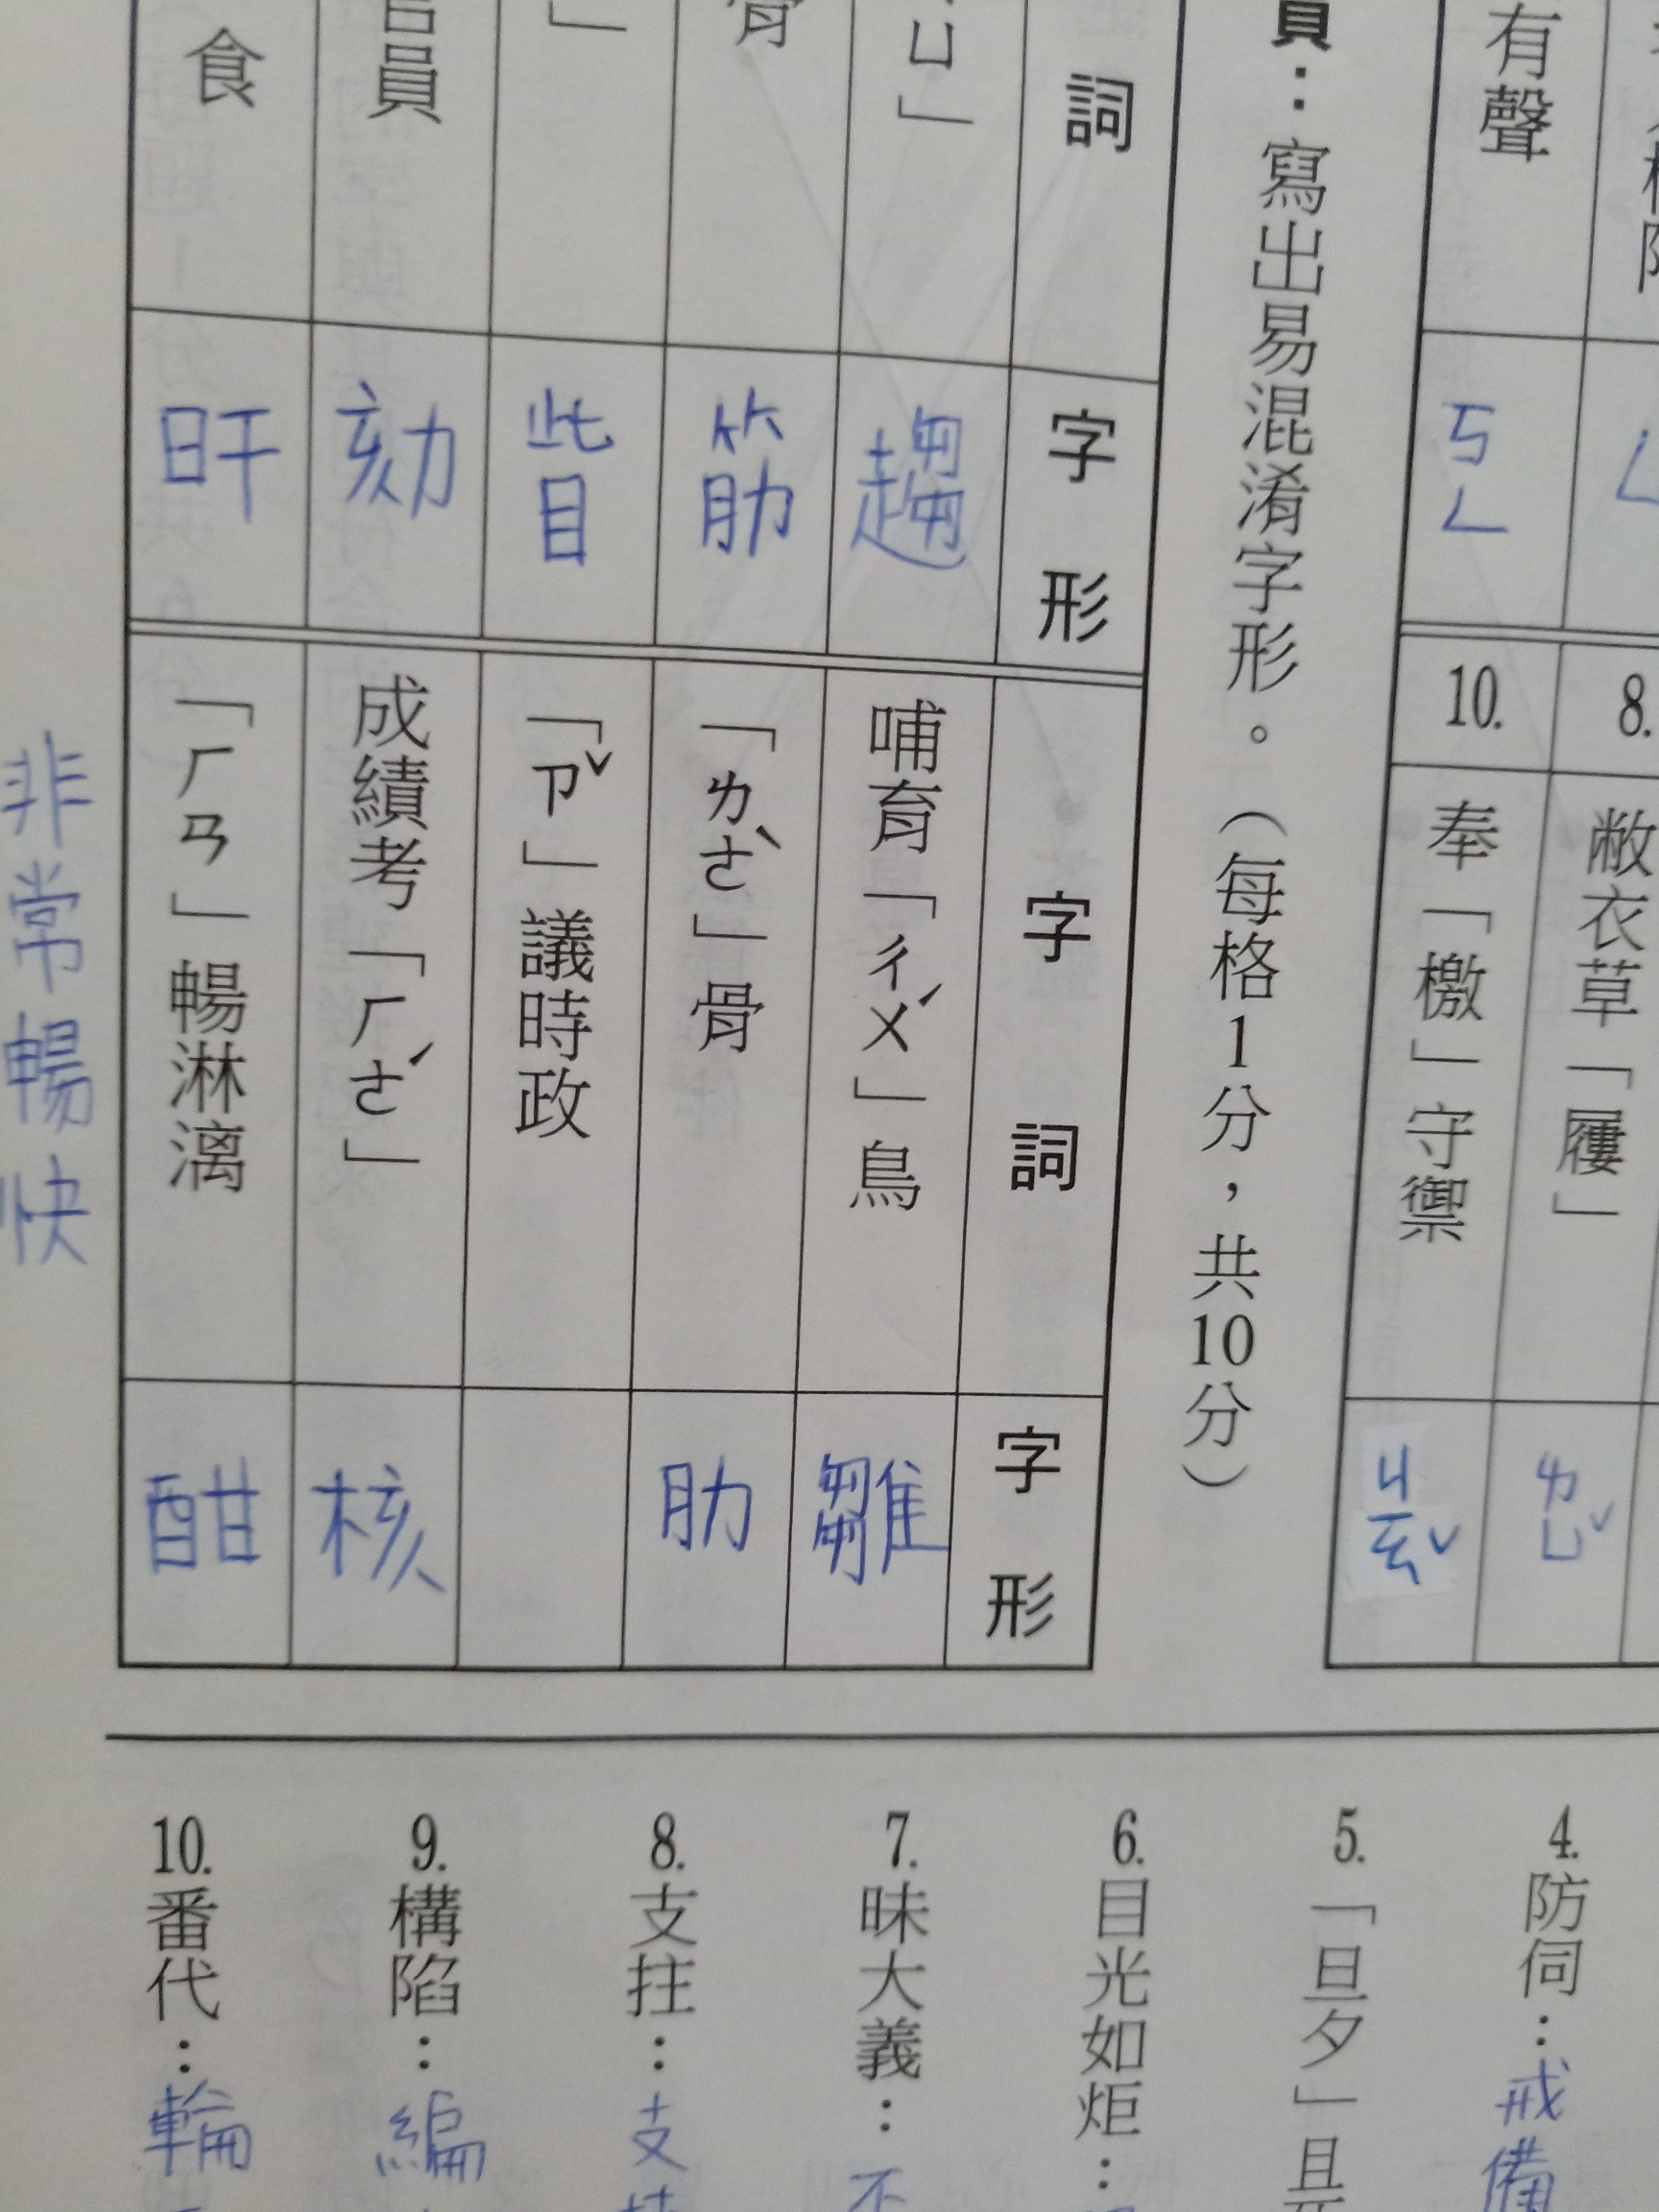 有聲
ㄎㄥ
8.
敝衣草「屨」
ㄌㄩˇ
10.
奉「檄」守禦
ㄐㄧㄠˇ
寫出易混淆字形。(每格1分,共10分)
詞
字形
字詞
字形
ㄩ」
趨
哺育「ㄔㄨˊ」鳥
雛
筋
「ㄌㄜˋ」骨
肋
」
眥
「ㄗˇ」議時政
員
劾
成績考「ㄏㄜˊ」
核
食
旰
「ㄏㄢ」暢淋漓
酣
非常暢快
4.防伺:戒備
5.「旦夕」且
6.目光如炬:
7.昧大義:不
8.支拄:支
9.構陷:編
10.番代:輪